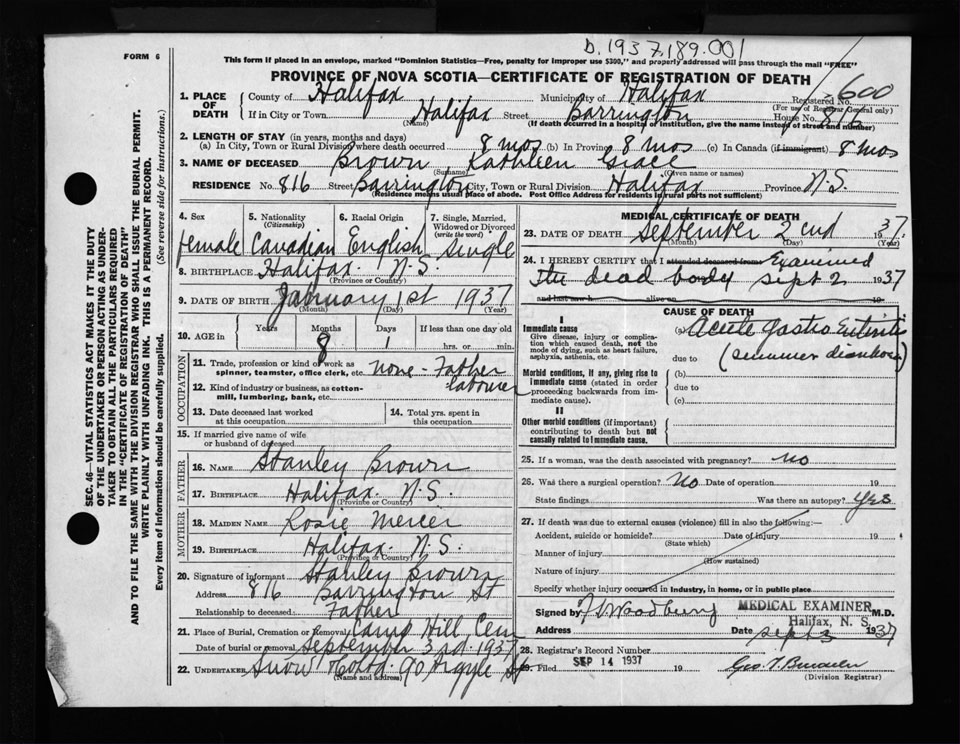 D.1937.189.001
FORM 6
This form if placed in an envelope, marked "Dominion Statistics—Free, penalty for improper use $300," and properly addressed will pass through the mail "FREE"
PROVINCE OF NOVA SCOTIA—CERTIFICATE OF REGISTRATION OF DEATH
1. PLACE OF DEATH
County of Halifax Municipality of Halifax Registered No. 600
(For use of Registrar General only)
If in City or Town Halifax Street Barrington House No. 816
(Name) (If death occurred in a hospital or institution, give the name instead of street and number)
2. LENGTH OF STAY (in years, months and days)
(a) In City, Town or Rural Division where death occurred 8 mos (b) In Province 8 mos (c) In Canada (if immigrant) 8 mos
3. NAME OF DECEASED Brown Kathleen Grace
(Surname) (Given name or names)
RESIDENCE No. 816 Street Barrington City, Town or Rural Division Halifax Province N.S.
(Residence means usual place of abode. Post Office Address for residents in rural parts not sufficient)
4. Sex 5. Nationality (Citizenship) 6. Racial Origin 7. Single, Married, Widowed or Divorced (write the word)
female Canadian English single
8. BIRTHPLACE Halifax. N.S.
(Province or Country)
9. DATE OF BIRTH January 1st 1937
(Month) (Day) (Year)
10. AGE in Years Months Days If less than one day old
8 1 hrs. or min.
OCCUPATION
11. Trade, profession or kind of work as spinner, teamster, office clerk, etc. none - Father
12. Kind of industry or business, as cotton-mill, lumbering, bank, etc. labourer
13. Date deceased last worked at this occupation
14. Total yrs. spent in this occupation
15. If married give name of wife or husband of deceased
FATHER
16. NAME Stanley Brown
17. BIRTHPLACE Halifax. N.S.
(Province or Country)
MOTHER
18. MAIDEN NAME Rosie Mercier
19. BIRTHPLACE Halifax. N.S.
(Province or Country)
20. Signature of informant Stanley Brown
Address 816 Barrington St
Relationship to deceased Father
21. Place of Burial, Cremation or Removal Camp Hill Cem
Date of burial or removal September 3rd 1937
22. UNDERTAKER Snow & Co Ltd. 90 Argyle St
(Name and address)
MEDICAL CERTIFICATE OF DEATH
23. DATE OF DEATH September 2nd 1937
(Month) (Day) (Year)
24. I HEREBY CERTIFY that I attended deceased from Examined
the dead body sept 2 1937
and last saw h alive on 19
CAUSE OF DEATH
I
Immediate cause (a) Acute Gastro Enteritis
Give disease, injury or complication which caused death, not the mode of dying, such as heart failure, asphyxia, asthenia, etc.
due to (summer diarrhoea)
Morbid conditions, if any, giving rise to immediate cause (stated in order proceeding backwards from immediate cause).
(b)
due to
(c)
II
Other morbid conditions (if important) contributing to death but not causally related to immediate cause.
25. If a woman, was the death associated with pregnancy? no
26. Was there a surgical operation? No Date of operation 19
State findings Was there an autopsy? Yes
27. If death was due to external causes (violence) fill in also the following:—
Accident, suicide or homicide? Date of injury 19
(State which)
Manner of injury
(How sustained)
Nature of injury
Specify whether injury occurred in industry, in home, or in public place
Signed by Woodbury MEDICAL EXAMINER M.D.
Halifax, N. S.
Address Date Sept 3 1937
28. Registrar's Record Number
29. Filed SEP 14 1937 19
(Division Registrar)
SEC. 46—VITAL STATISTICS ACT MAKES IT THE DUTY
OF THE UNDERTAKER OR PERSON ACTING AS UNDERTAKER TO OBTAIN ALL THE PARTICULARS REQUIRED
IN THE "CERTIFICATE OF REGISTRATION OF DEATH"
AND TO FILE THE SAME WITH THE DIVISION REGISTRAR WHO SHALL ISSUE THE BURIAL PERMIT.
WRITE PLAINLY WITH UNFADING INK. THIS IS A PERMANENT RECORD.
Every item of information should be carefully supplied. (See reverse side for instructions.)